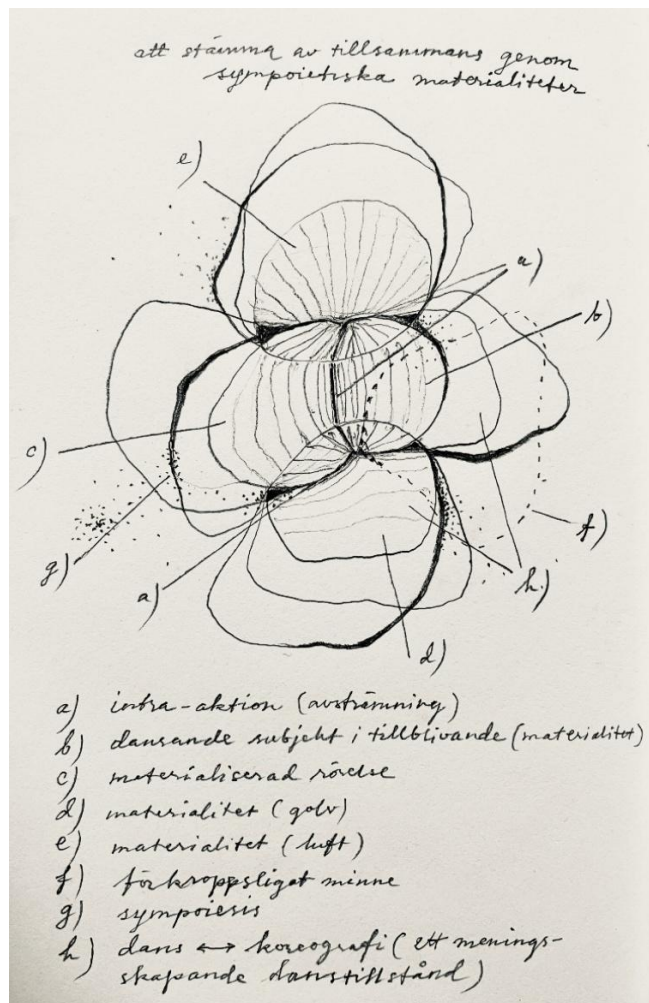 att stämma av tillsammans genom
sympoietiska materialiteter
e)
a)
b)
c)
g)
a)
f)
h)
d)
a) intra-aktion (avstämning)
b) dansande subjekt i tillblivande (materialitet)
c) materialiserad rörelse
d) materialitet (golv)
e) materialitet (luft)
f) förkroppsligat minne
g) sympoiesis
h) dans ↔ koreografi (ett menings-
skapande danstillstånd)